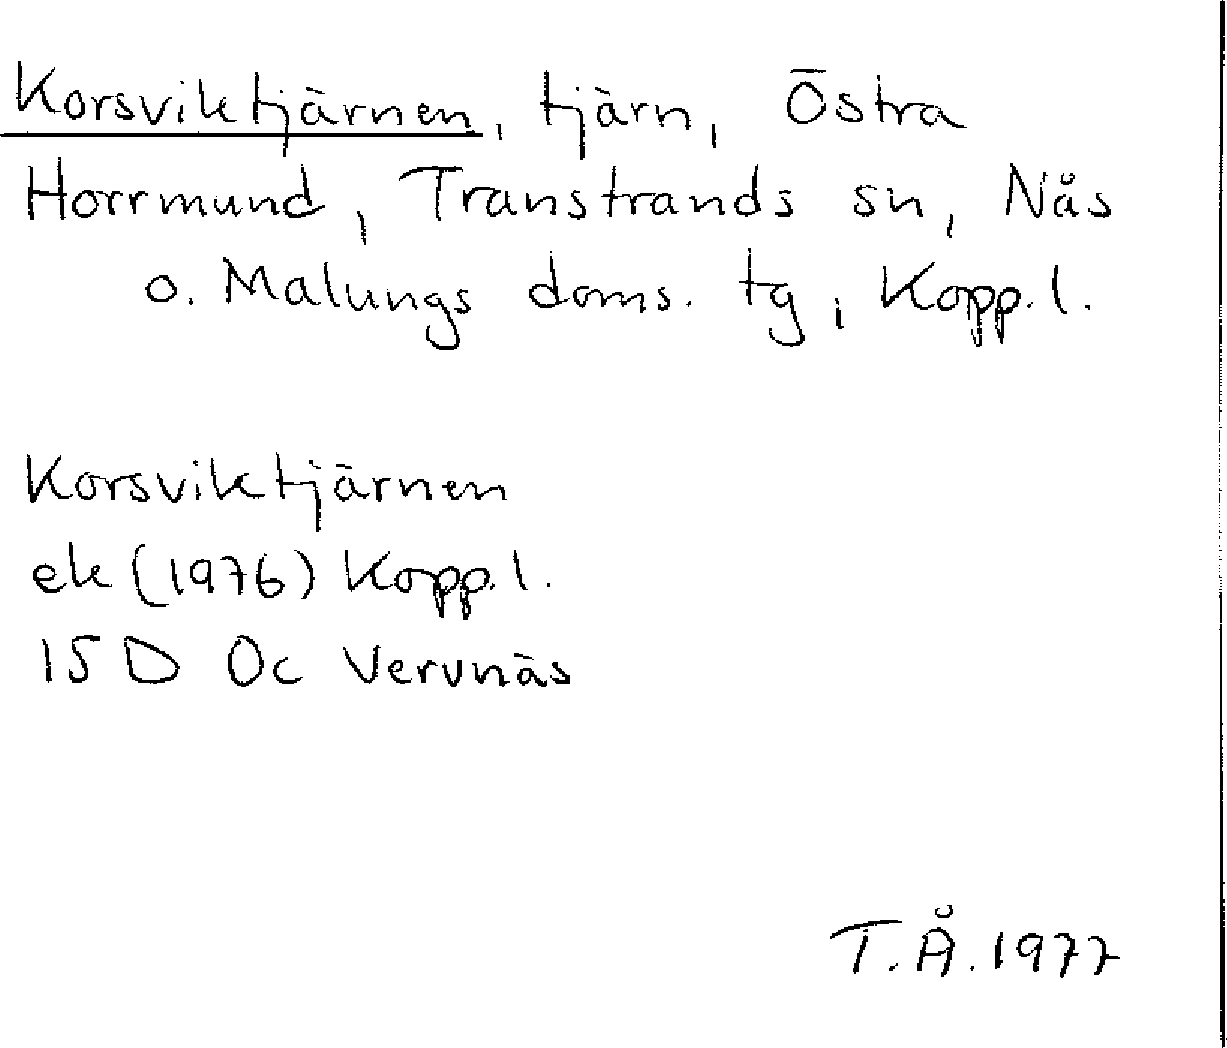 Korsviktjärnen, tjärn, Östra
Horrmund, Transtrands sn, Nås
o. Malungs doms. tg, Kopp.l.
Korsviktjärnen
ek (1976) Kopp.l.
15 D 0c Vervnäs
T.Å.1977